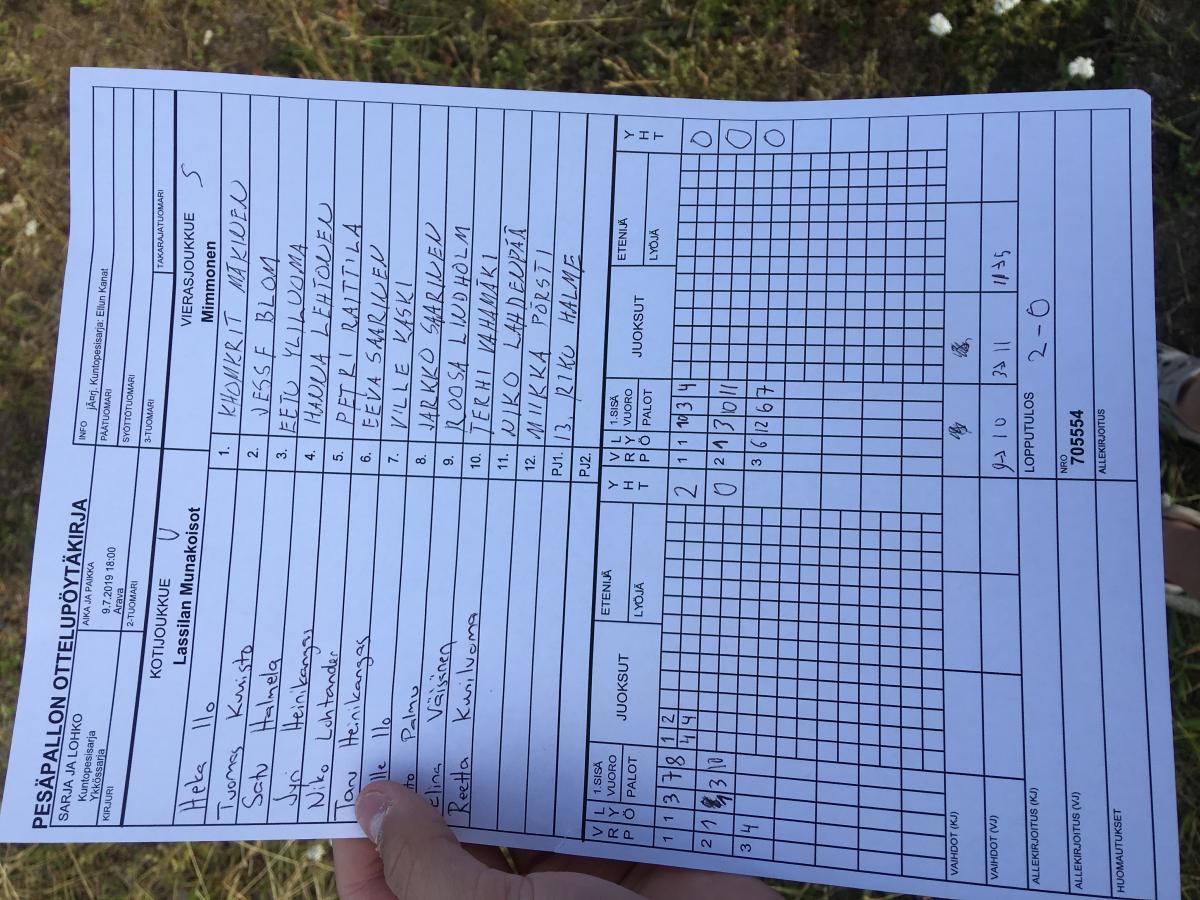 PESÄPALLON OTTELUPÖYTÄKIRJA
SARJA JA LOHKO
Kuntopesisarja
Ykkössarja
AIKA JA PAIKKA
9.7.2019 18:00
Arava
INFO jÃ¤rj. Kuntopesisarja: Ellun Kanat
PÄÄTUOMARI
SYÖTTÖTUOMARI
KIRJURI
2-TUOMARI
3-TUOMARI
TAKARAJATUOMARI
KOTIJOUKKUE U
Lassilan Munakoisot
VIERASJOUKKUE S
Mimmonen
Heka Ilo 1. KHOMKRIT MÄKINEN
Tuomas Kunisto 2. JESSE BLOM
Satu Halmela 3. EETU YLILUOMA
Jyri Heinikangas 4. HANNA LEHTONEN
Niko Lohtander 5. PETRI RAITTILA
Taru Heinikangas 6. EEVA SAARINEN
Ilo 7. VILLE KASKI
Palmu 8. JARKKO SAARINEN
Väisänen 9. ROOSA LINDHOLM
Reetta Kuniluoma 10. TERHI VÄHÄMÄKI
11. NIKO LAHDENPÄÄ
12. MIIKKA PÖRSTI
PJ1. 13. RIKU HALME
PJ2.
V R P L Y Ö 1.SISÄ VUORO PALOT JUOKSUT ETENIJÄ LYÖJÄ Y H T V R P L Y Ö 1.SISÄ VUORO PALOT JUOKSUT ETENIJÄ LYÖJÄ Y H T
1 1 3 7 8 1 2 2 1 1 3 4 0
4 4
2 1 3 10 0 2 1 3 10 11 0
3 4 3 6 12 6 7 0
VAIHDOT (KJ)
VAIHDOT (VJ) 9→10 3→11
ALLEKIRJOITUS (KJ) LOPPUTULOS 2-0
ALLEKIRJOITUS (VJ) NRO
705554
HUOMAUTUKSET ALLEKIRJOITUS